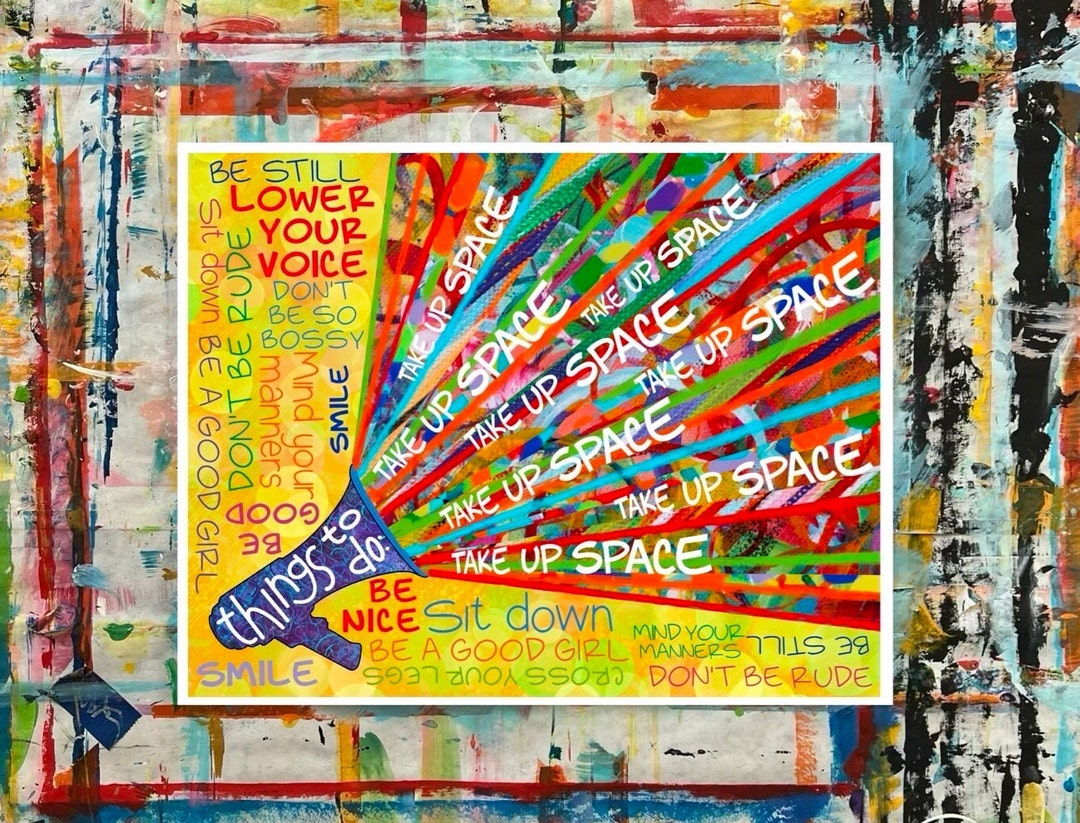 BE STILL
LOWER
YOUR
VOICE
DON'T
BE SO
BOSSY
Sit down BE A GOOD GIRL
DON'T BE RUDE
Mind your
manners
SMILE
BE
GOOD
things to
do:
TAKE UP SPACE
TAKE UP SPACE
TAKE UP SPACE
TAKE UP SPACE
TAKE UP SPACE
TAKE UP SPACE
TAKE UP SPACE
TAKE UP SPACE
BE
NICE
Sit down
BE A GOOD GIRL
MIND YOUR
MANNERS
BE STILL
SMILE
CROSS YOUR LEGS
DON'T BE RUDE